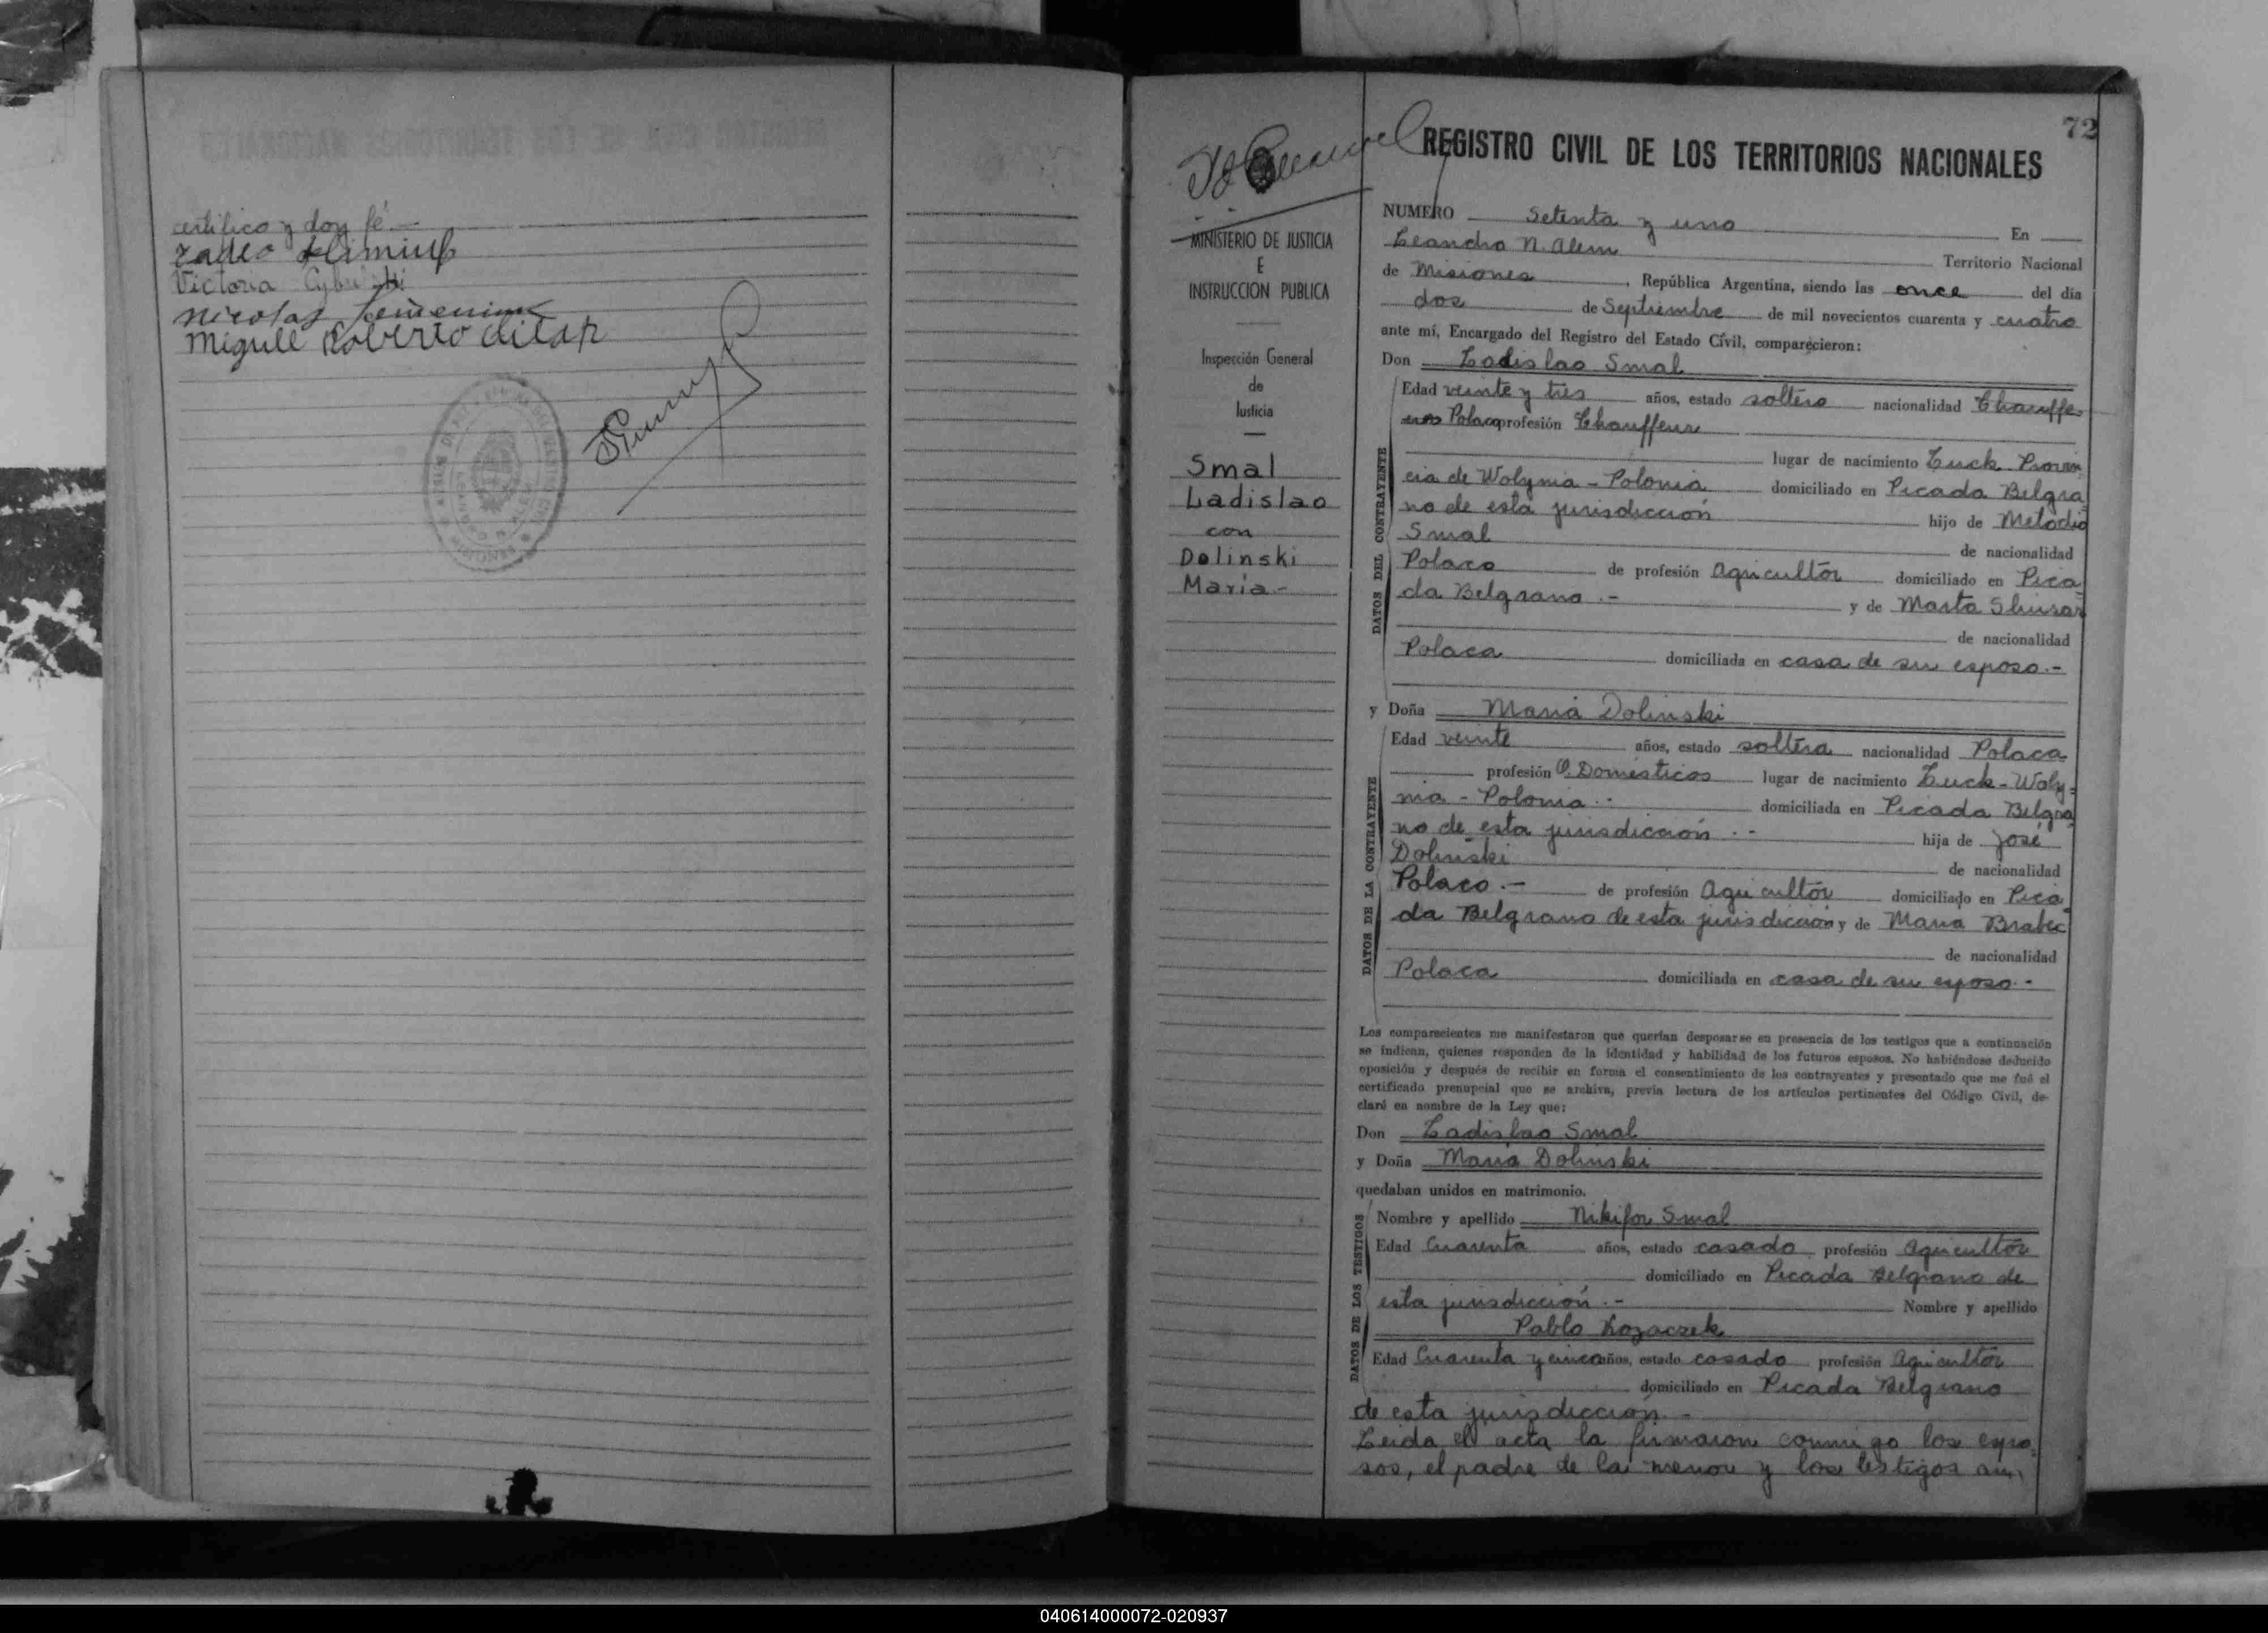 certifico y doy fé.—
Victoria
Nicolas
Miguel Roberto
72
REGISTRO CIVIL DE LOS TERRITORIOS NACIONALES
MINISTERIO DE JUSTICIA
E
INSTRUCCION PUBLICA
Inspección General
de
Justicia
Smal
Ladislao
con
Dolinski
María-
NUMERO Setenta y uno En
Leandro N. Alem Territorio Nacional
de Misiones, República Argentina, siendo las once del día
dos de Septiembre de mil novecientos cuarenta y cuatro
ante mí, Encargado del Registro del Estado Civil, comparecieron:
Don Ladislao Smal
Edad veinte y tres años, estado soltero nacionalidad Chauffe
Polaco profesión Chauffeur
lugar de nacimiento Luck Provin
cia de Wolynia - Polonia domiciliado en Picada Belgra
no de esta jurisdicción hijo de Melodio
Smal de nacionalidad
Polaco de profesión Agricultor domiciliado en Pica
da Belgrano.- y de Marta Slusar
de nacionalidad
Polaca domiciliada en casa de su esposo.-
y Doña María Dolinski
Edad veinte años, estado soltera nacionalidad Polaca
profesión Q. Domésticos lugar de nacimiento Luck - Woly-
nia - Polonia.- domiciliada en Picada Belgra
no de esta jurisdicción.- hija de José
Dolinski de nacionalidad
Polaco.- de profesión Agricultor domiciliado en Pica
da Belgrano de esta jurisdicción y de María Brabec
de nacionalidad
Polaca domiciliada en casa de su esposo.-
Los comparecientes me manifestaron que querían desposarse en presencia de los testigos que a continuación
se indican, quienes responden de la identidad y habilidad de los futuros esposos. No habiéndose deducido
oposición y después de recibir en forma el consentimiento de los contrayentes y presentado que me fué el
certificado prenupcial que se archiva, previa lectura de los artículos pertinentes del Código Civil, de-
claré en nombre de la Ley que:
Don Ladislao Smal
y Doña María Dolinski
quedaban unidos en matrimonio.
Nombre y apellido Nikifor Smal
Edad Cuarenta años, estado casado profesión Agricultor
domiciliado en Picada Belgrano de
esta jurisdicción.- Nombre y apellido
Pablo Kozaczek
Edad Cuarenta y cinco años, estado casado profesión Agricultor
domiciliado en Picada Belgrano
de esta jurisdicción.-
Leida el acta la firmaron conmigo los espo-
sos, el padre de la menor y los testigos
DATOS DEL CONTRAYENTE
DATOS DE LA CONTRAYENTE
DATOS DE LOS TESTIGOS
040614000072-020937